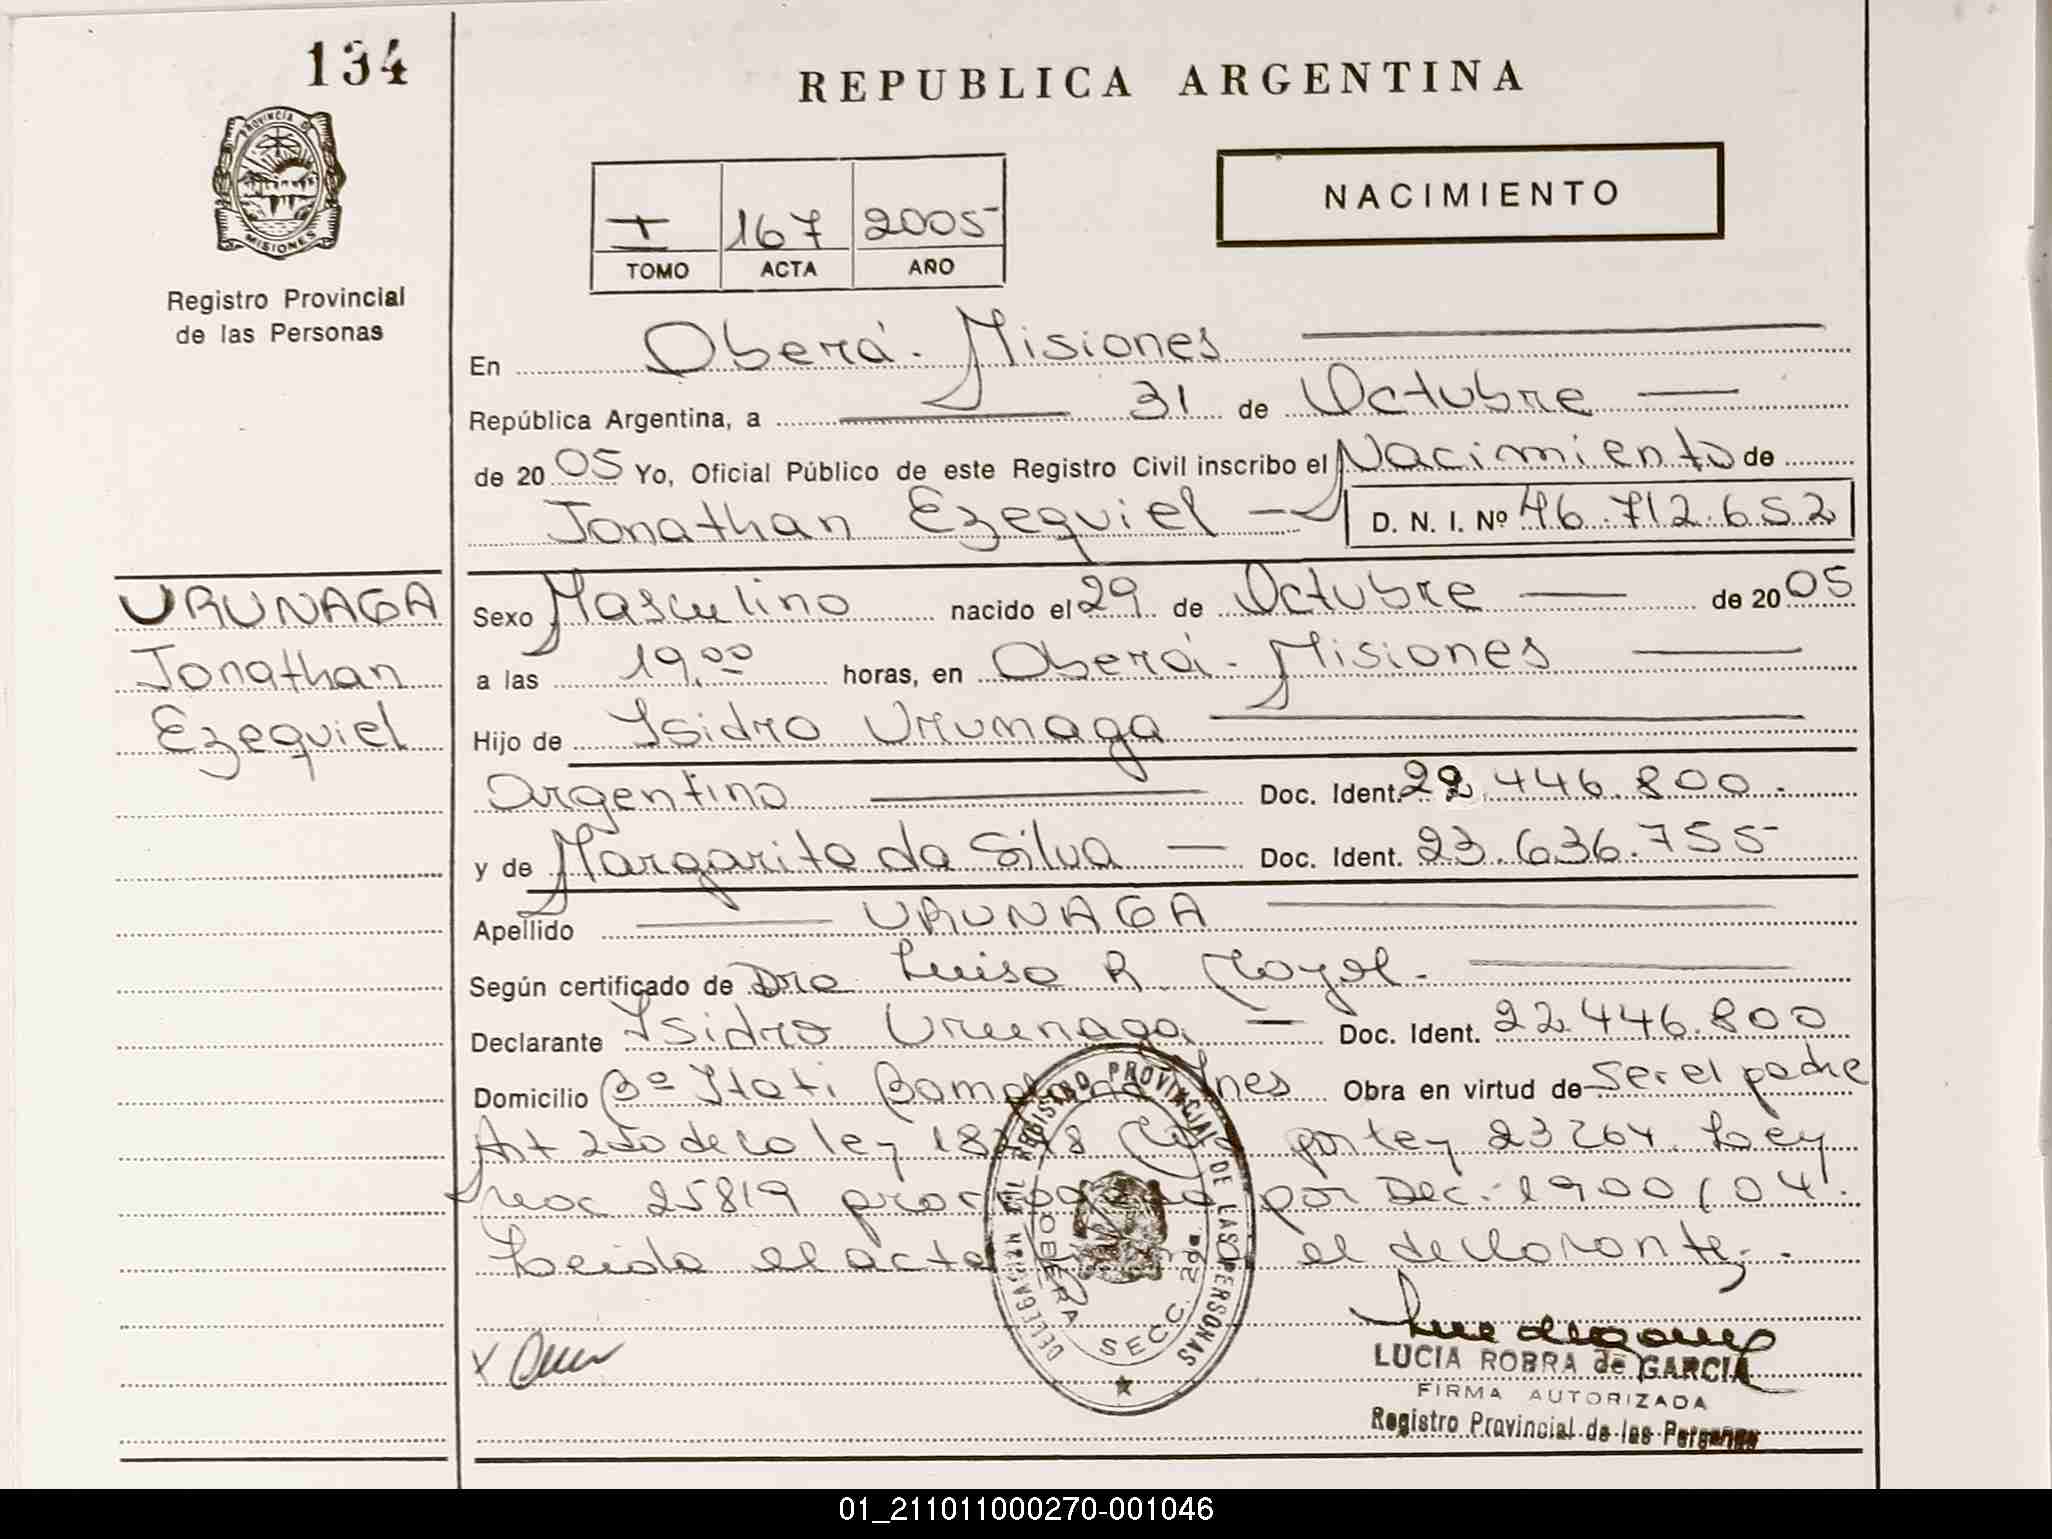 134
REPUBLICA ARGENTINA
PROVINCIA DE
MISIONES
Registro Provincial
de las Personas
NACIMIENTO
I 167 2005
TOMO ACTA AÑO
En Oberá - Misiones
República Argentina, a 31 de Octubre
de 2005 Yo, Oficial Público de este Registro Civil inscribo el Nacimiento de
Jonathan Ezequiel D. N. I. Nº 46.712.652
URUNAGA
Jonathan
Ezequiel
Sexo Masculino nacido el 29 de Octubre de 2005
a las 19,00 horas, en Oberá - Misiones
Hijo de Isidro Urunaga
Argentino Doc. Ident. 22.446.800.
y de Margarita da Silva Doc. Ident. 23.636.755
Apellido URUNAGA
Según certificado de Dra Luisa R.
Declarante Isidro Urunaga Doc. Ident. 22.446.800
Domicilio Bº Itati Inés Obra en virtud de ser el padre
Art de la ley por ley 23264. Ley
25819 por Dec. 1900/04.
Leida el acta el declarante.
x
REGISTRO PROVINCIAL DE LAS PERSONAS
DELEGACION
OBERA SECC. 2da.
LUCIA ROBRA de GARCIA
FIRMA AUTORIZADA
Registro Provincial de las Personas
01_211011000270-001046